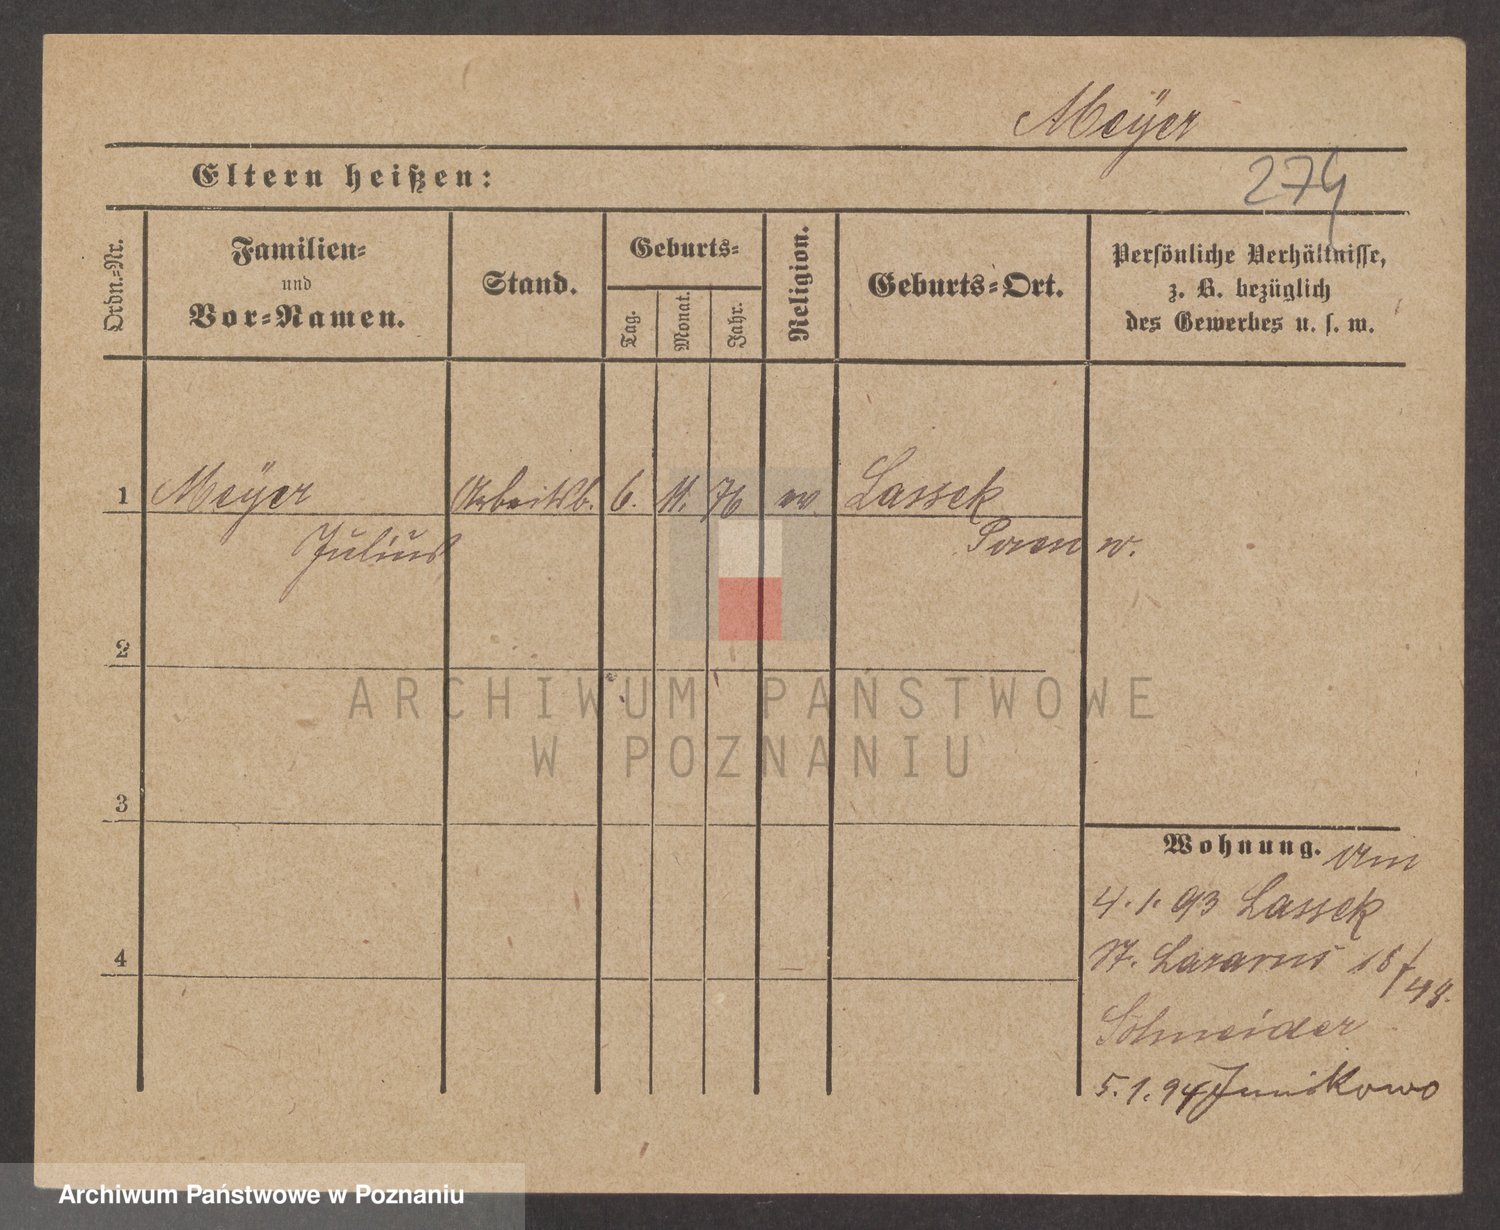 Meÿer
Eltern heißen:
274
Ordn.-Nr.
Familien-
und
Vor-Namen.
Stand.
Geburts-
Tag.
Monat.
Jahr.
Religion.
Geburts-Ort.
Persönliche Verhältnisse,
z. B. bezüglich
des Gewerbes u. s. w.
1 Meÿer Arbeitsb. 6. 11. 76 ev. Lassek
Julius Posen W.
2
ARCHIWUM PAŃSTWOWE
W POZNANIU
3
Wohnung. Um
4.1.93 Lassek
St. Lazarus 18/
48.
Schneider
5.1.94 Junikowo
4
Archiwum Państwowe w Poznaniu